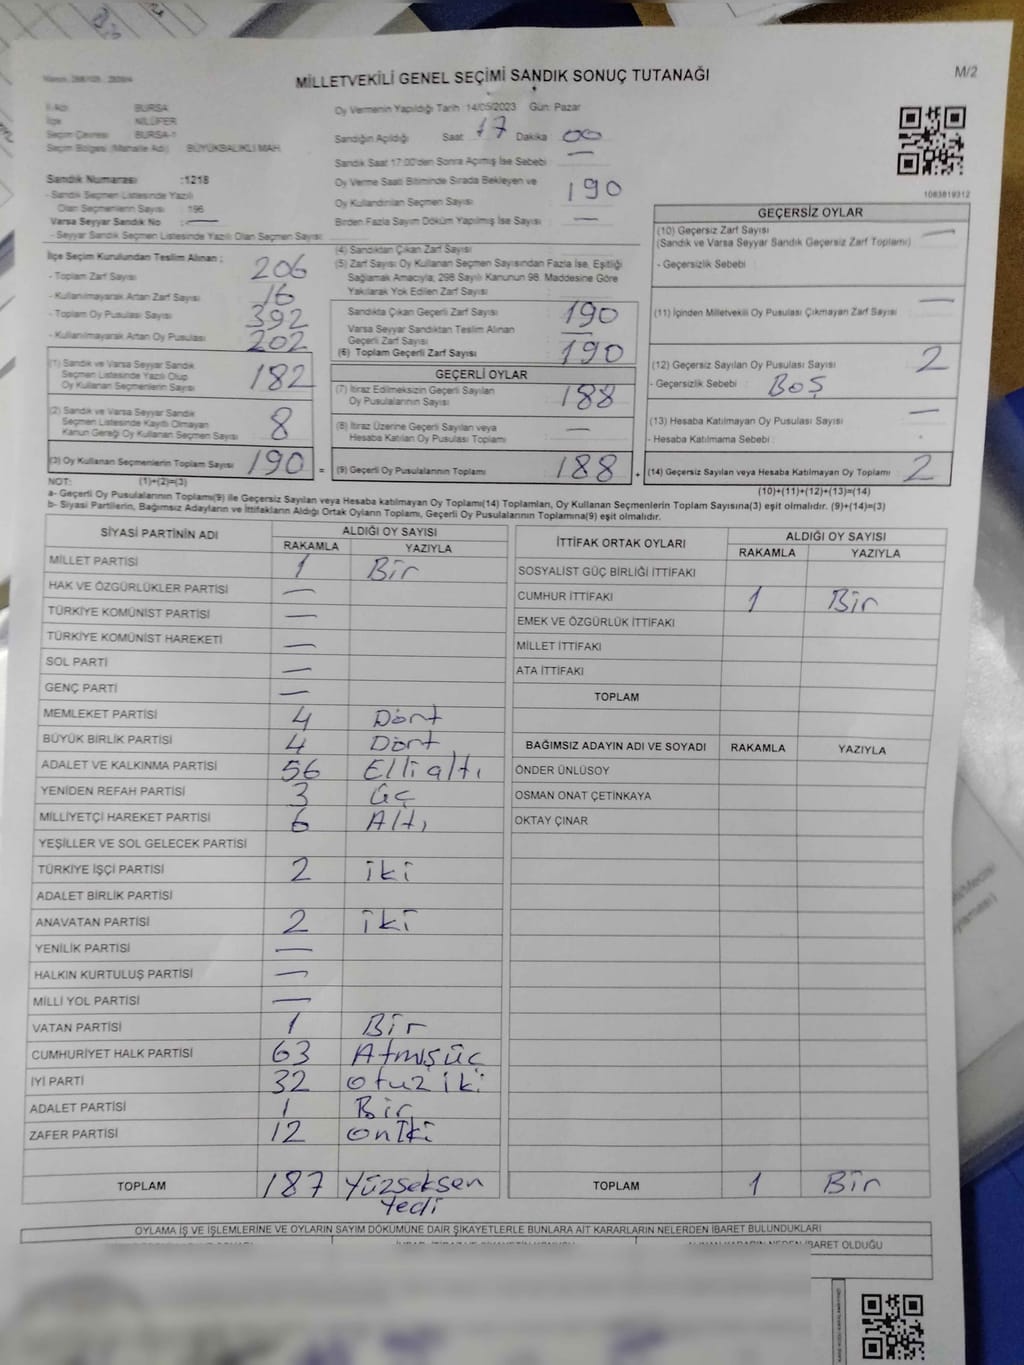 MİLLETVEKİLİ GENEL SEÇİMİ SANDIK SONUÇ TUTANAĞI
M/2
İl Adı BURSA
İlçe NİLÜFER
Seçim Çevresi BURSA-1
Seçim Bölgesi (Mahalle Adı) BÜYÜKBALIKLI MAH
Sandık Numarası :1218
- Sandık Seçmen Listesinde Yazılı
Olan Seçmenlerin Sayısı : 196
Varsa Seyyar Sandık No : —
- Seyyar Sandık Seçmen Listesinde Yazılı Olan Seçmen Sayısı:
Oy Vermenin Yapıldığı Tarih :14/05/2023 Gün: Pazar
Sandığın Açıldığı Saat 17 Dakika 00
Sandık Saat 17:00'den Sonra Açılmış İse Sebebi —
Oy Verme Saati Bitiminde Sırada Bekleyen ve
Oy Kullandırılan Seçmen Sayısı : 190
Birden Fazla Sayım Döküm Yapılmış İse Sayısı : —
1083819312
İlçe Seçim Kurulundan Teslim Alınan ;
- Toplam Zarf Sayısı 206
- Kullanılmayarak Artan Zarf Sayısı 16
- Toplam Oy Pusulası Sayısı 392
- Kullanılmayarak Artan Oy Pusulası 202
(1) Sandık ve Varsa Seyyar Sandık
Seçmen Listesinde Yazılı Olup
Oy Kullanan Seçmenlerin Sayısı 182
(2) Sandık ve Varsa Seyyar Sandık
Seçmen Listesinde Kayıtlı Olmayan
Kanun Gereği Oy Kullanan Seçmen Sayısı 8
(3) Oy Kullanan Seçmenlerin Toplam Sayısı 190 =
(4) Sandıktan Çıkan Zarf Sayısı
(5) Zarf Sayısı Oy Kullanan Seçmen Sayısından Fazla İse, Eşitliği
Sağlamak Amacıyla, 298 Sayılı Kanunun 98. Maddesine Göre
Yakılarak Yok Edilen Zarf Sayısı :
Sandıkta Çıkan Geçerli Zarf Sayısı 190
Varsa Seyyar Sandıktan Teslim Alınan
Geçerli Zarf Sayısı —
(6) Toplam Geçerli Zarf Sayısı 190
GEÇERLİ OYLAR
(7) İtiraz Edilmeksizin Geçerli Sayılan
Oy Pusulalarının Sayısı 188
(8) İtiraz Üzerine Geçerli Sayılan veya
Hesaba Katılan Oy Pusulası Toplamı —
(9) Geçerli Oy Pusulalarının Toplamı 188 +
GEÇERSİZ OYLAR
(10) Geçersiz Zarf Sayısı —
(Sandık ve Varsa Seyyar Sandık Geçersiz Zarf Toplamı)
- Geçersizlik Sebebi :
(11) İçinden Milletvekili Oy Pusulası Çıkmayan Zarf Sayısı —
(12) Geçersiz Sayılan Oy Pusulası Sayısı 2
- Geçersizlik Sebebi : BOŞ
(13) Hesaba Katılmayan Oy Pusulası Sayısı —
- Hesaba Katılmama Sebebi :
(14) Geçersiz Sayılan veya Hesaba Katılmayan Oy Toplamı 2
NOT: (1)+(2)=(3)
(10)+(11)+(12)+(13)=(14)
a- Geçerli Oy Pusulalarının Toplamı(9) ile Geçersiz Sayılan veya Hesaba katılmayan Oy Toplamı(14) Toplamları, Oy Kullanan Seçmenlerin Toplam Sayısına(3) eşit olmalıdır. (9)+(14)=(3)
b- Siyasi Partilerin, Bağımsız Adayların ve İttifakların Aldığı Ortak Oyların Toplamı, Geçerli Oy Pusulalarının Toplamına(9) eşit olmalıdır.
SİYASİ PARTİNİN ADI
ALDIĞI OY SAYISI
RAKAMLA YAZIYLA
MİLLET PARTİSİ 1 Bir
HAK VE ÖZGÜRLÜKLER PARTİSİ —
TÜRKİYE KOMÜNİST PARTİSİ —
TÜRKİYE KOMÜNİST HAREKETİ —
SOL PARTİ —
GENÇ PARTİ —
MEMLEKET PARTİSİ 4 Dört
BÜYÜK BİRLİK PARTİSİ 4 Dört
ADALET VE KALKINMA PARTİSİ 56 Elli altı
YENİDEN REFAH PARTİSİ 3 üç
MİLLİYETÇİ HAREKET PARTİSİ 6 Altı
YEŞİLLER VE SOL GELECEK PARTİSİ
TÜRKİYE İŞÇİ PARTİSİ 2 iki
ADALET BİRLİK PARTİSİ
ANAVATAN PARTİSİ 2 iki
YENİLİK PARTİSİ —
HALKIN KURTULUŞ PARTİSİ —
MİLLİ YOL PARTİSİ —
VATAN PARTİSİ 1 Bir
CUMHURİYET HALK PARTİSİ 63 Atmışüç
İYİ PARTİ 32 otuz iki
ADALET PARTİSİ 1 Bir
ZAFER PARTİSİ 12 oniki
TOPLAM 187 Yüzseksen
Yedi
İTTİFAK ORTAK OYLARI
ALDIĞI OY SAYISI
RAKAMLA YAZIYLA
SOSYALİST GÜÇ BİRLİĞİ İTTİFAKI
CUMHUR İTTİFAKI 1 Bir
EMEK VE ÖZGÜRLÜK İTTİFAKI
MİLLET İTTİFAKI
ATA İTTİFAKI
TOPLAM
BAĞIMSIZ ADAYIN ADI VE SOYADI RAKAMLA YAZIYLA
ÖNDER ÜNLÜSOY
OSMAN ONAT ÇETİNKAYA
OKTAY ÇINAR
TOPLAM 1 Bir
OYLAMA İŞ VE İŞLEMLERİNE VE OYLARIN SAYIM DÖKÜMÜNE DAİR ŞİKAYETLERLE BUNLARA AİT KARARLARIN NELERDEN İBARET BULUNDUKLARI
İBARET OLDUĞU